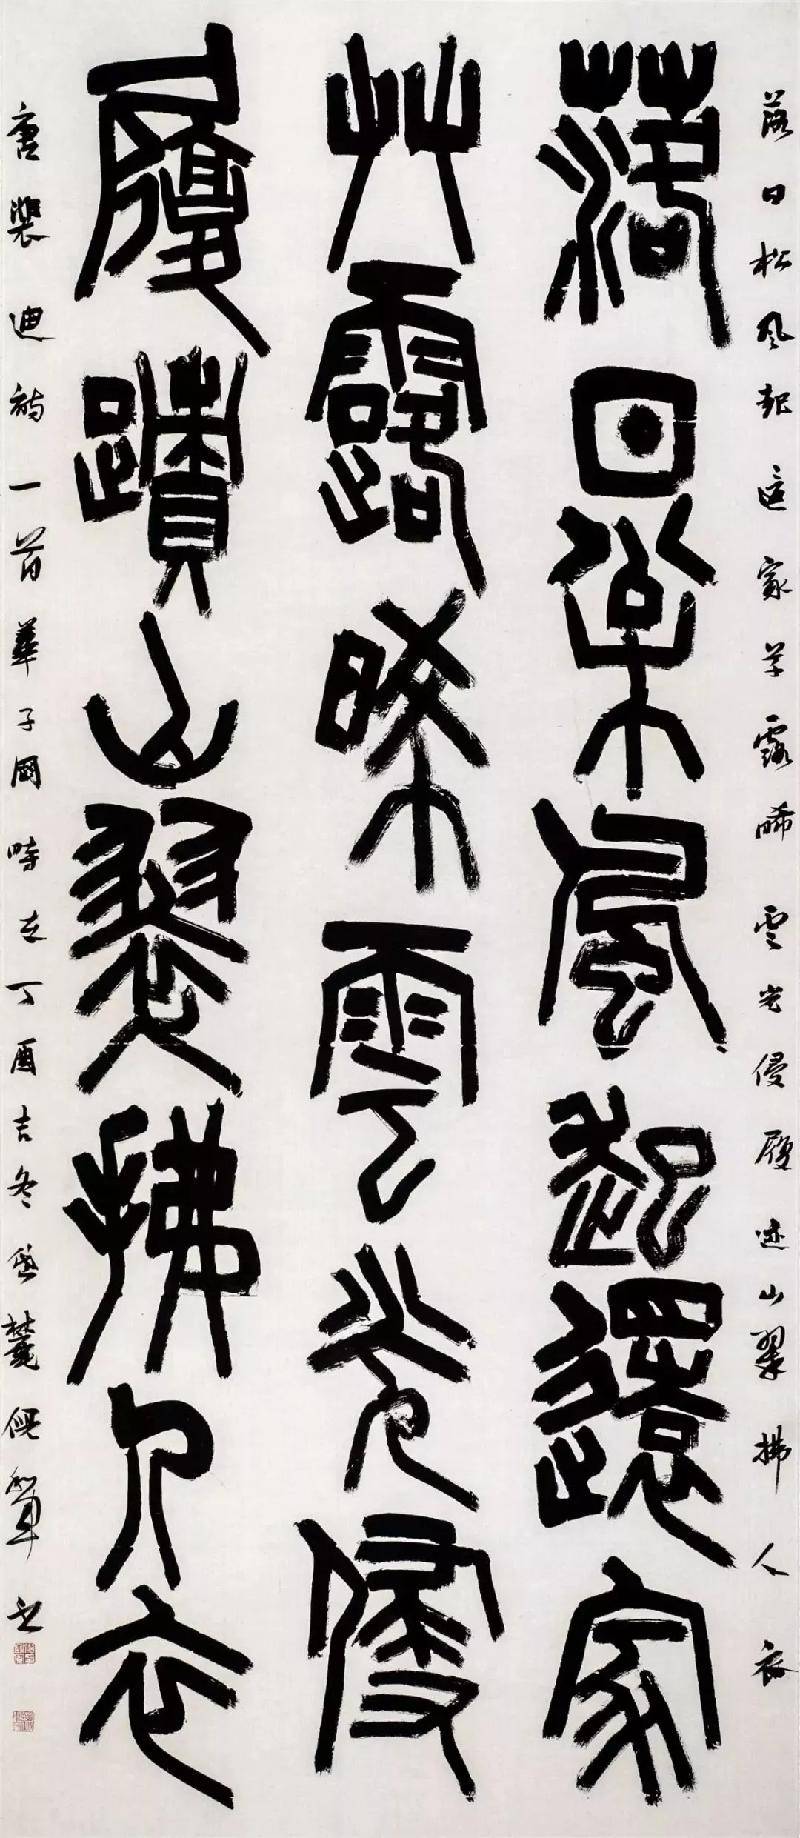 落日松风起还家草露晞云光侵履迹山翠拂人衣
落日松風起還家
艸露晞雲光侵
履蹟山翠拂人衣
唐裴迪詩一首華子岡時在丁酉吉冬